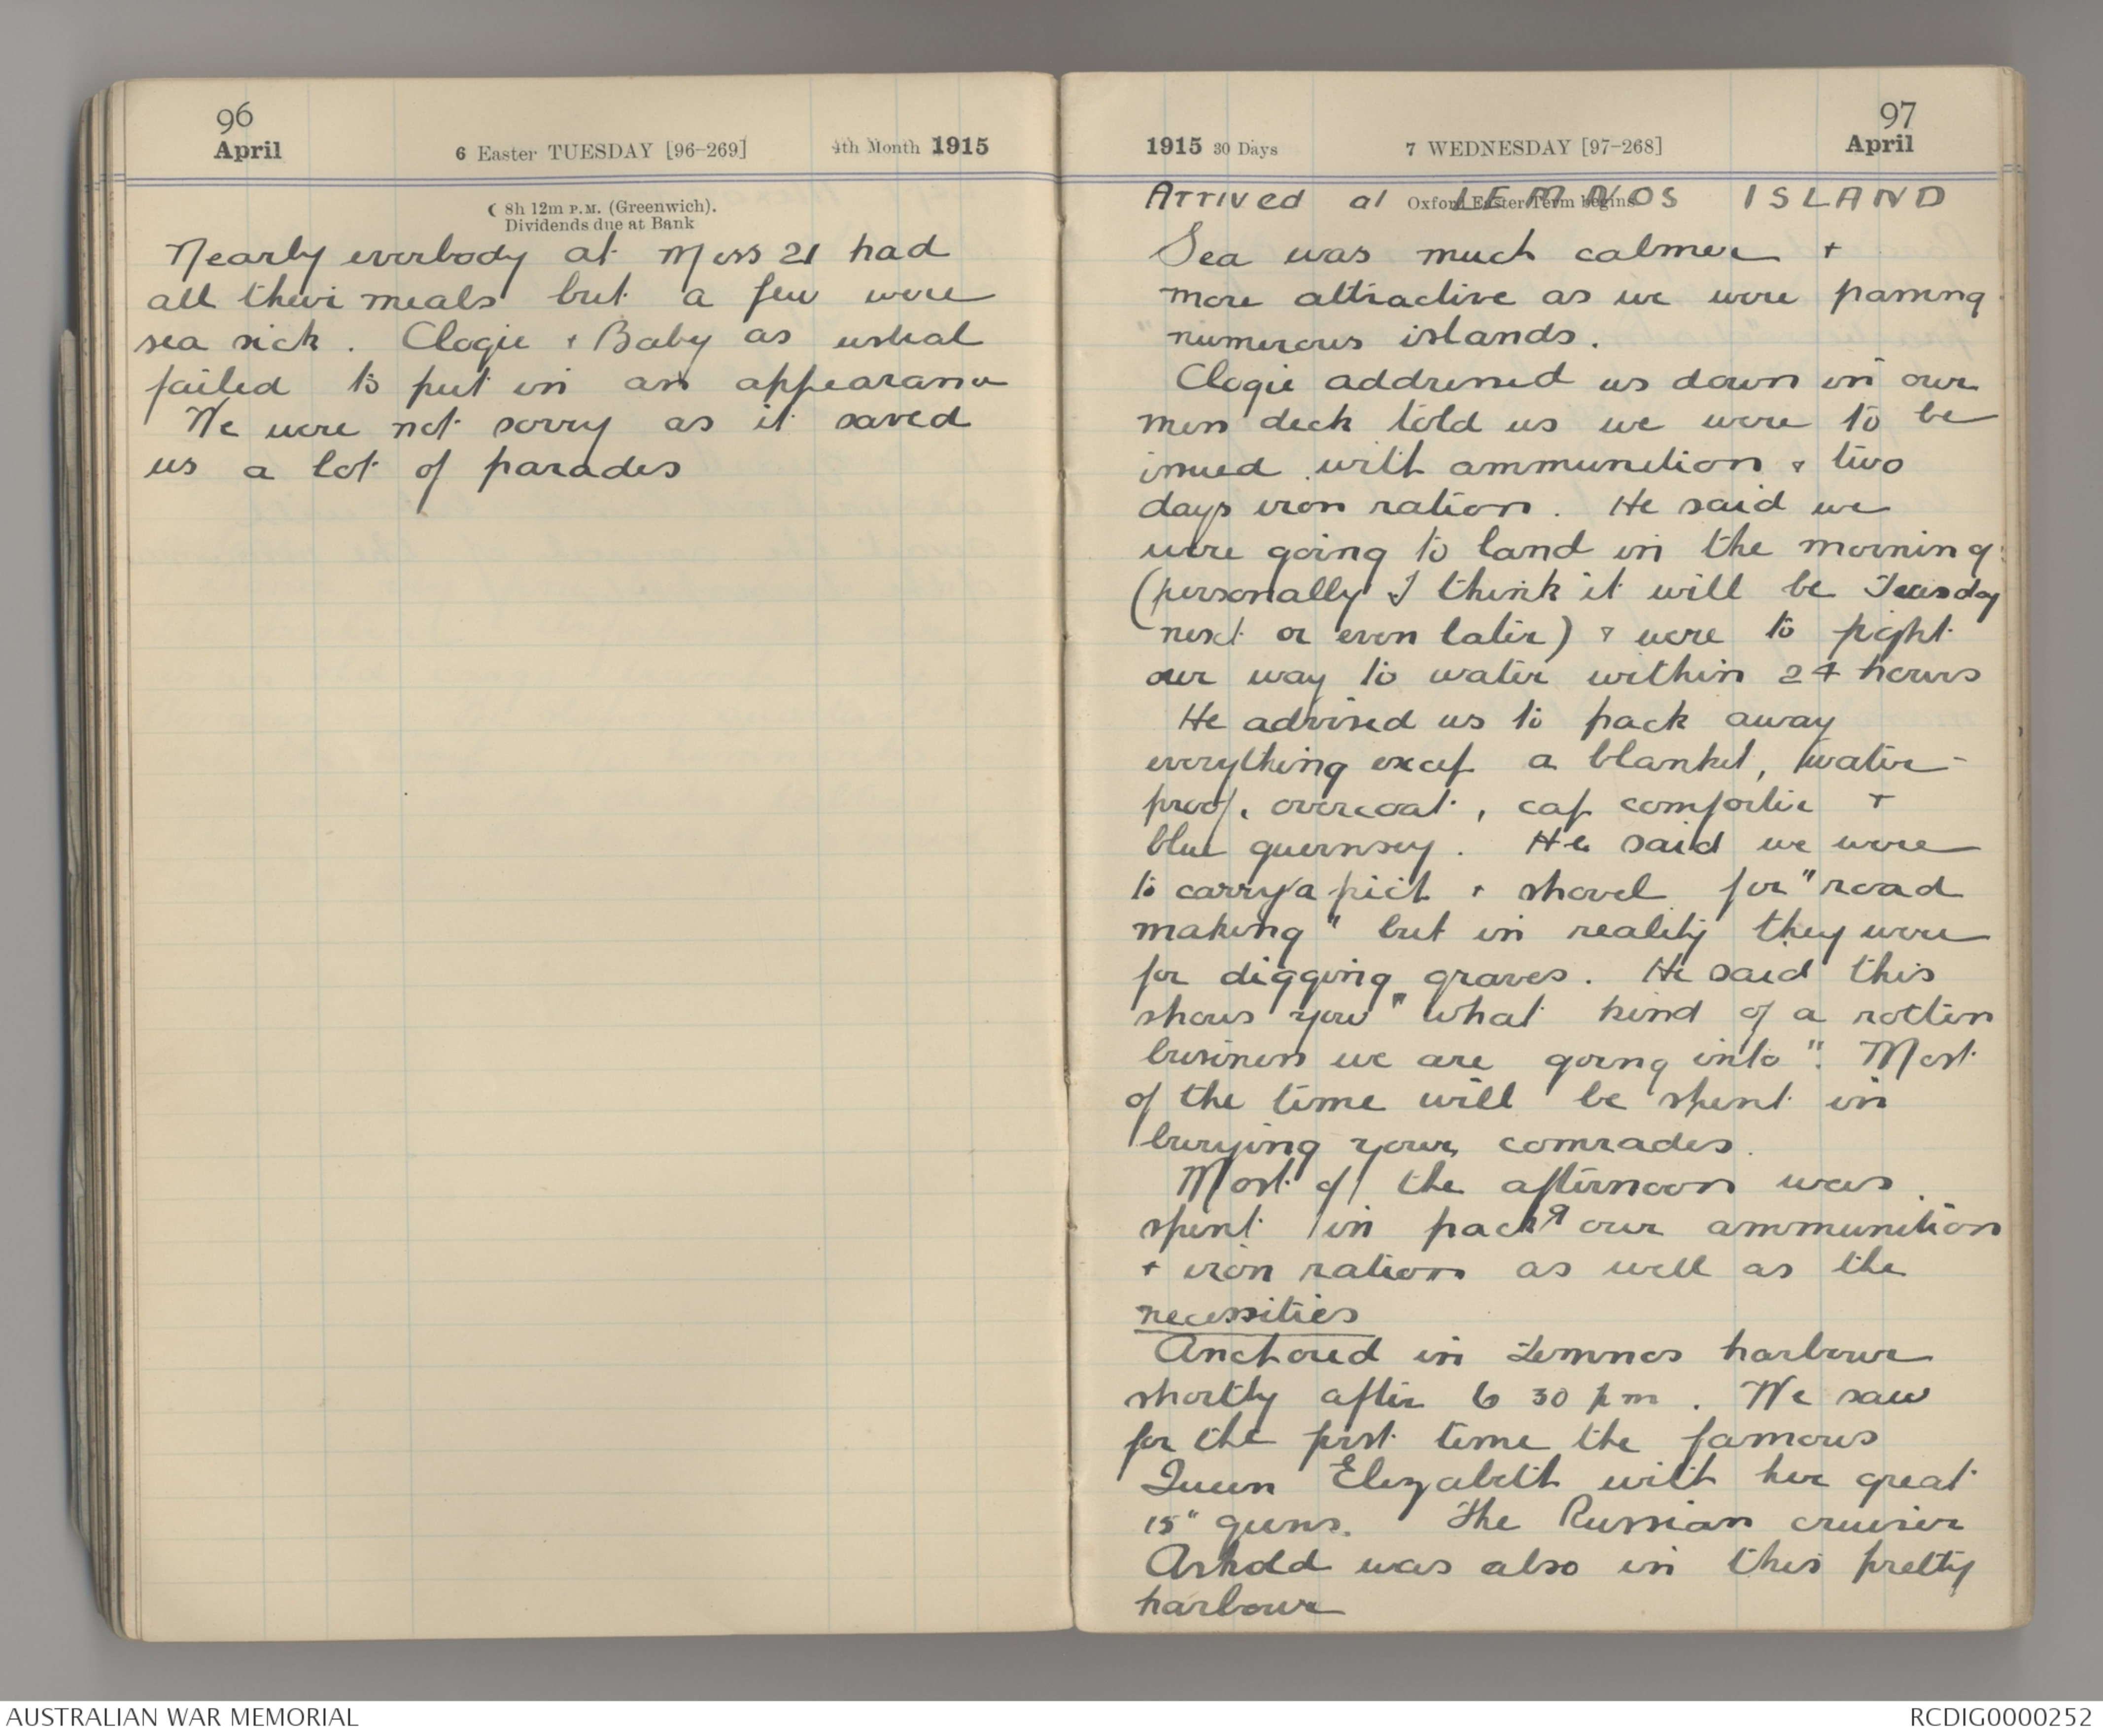 96
April
6 Easter TUESDAY [96-269]
4th Month 1915
☾ 8h 12m P.M. (Greenwich).
Dividends due at Bank
Nearly everbody at Mess 21 had
all their meals but a few were
sea sick. Clogie + Baby as usual
failed to put in an appearance
We were not sorry as it saved
us a lot of parades
97
1915 30 Days
7 WEDNESDAY [97-268]
April
Oxford Easter Term begins
Arrived at LEMNOS ISLAND
Sea was much calmer +
more attractive as we were passing
numerous islands.
Clogie addressed us down in our
mess deck told us we were to be
issued with ammunition + two
days iron ration. He said we
were going to land in the morning
(personally I think it will be Tuesday
next or even later) + were to fight
our way to water within 24 hours
He advised us to pack away
everything excep a blanket, water-
proof, overcoat, cap comforter +
blue guernsey. He said we were
to carry a pick + shovel for "road
making" but in reality they were
for digging graves. He said this
shows you "what kind of a rotten
business we are going into". Most
of the time will be spent in
burying your comrades.
Most of the afternoon was
spent in packg our ammunition
+ iron rations as well as the
necessities
Anchored in Lemnos harbour
shortly after 6 30 pm. We saw
for the first time the famous
Queen Elizabeth with her great
15" guns. The Russian cruiser
Askold was also in this pretty
harbour
AUSTRALIAN WAR MEMORIAL
RCDIG0000252